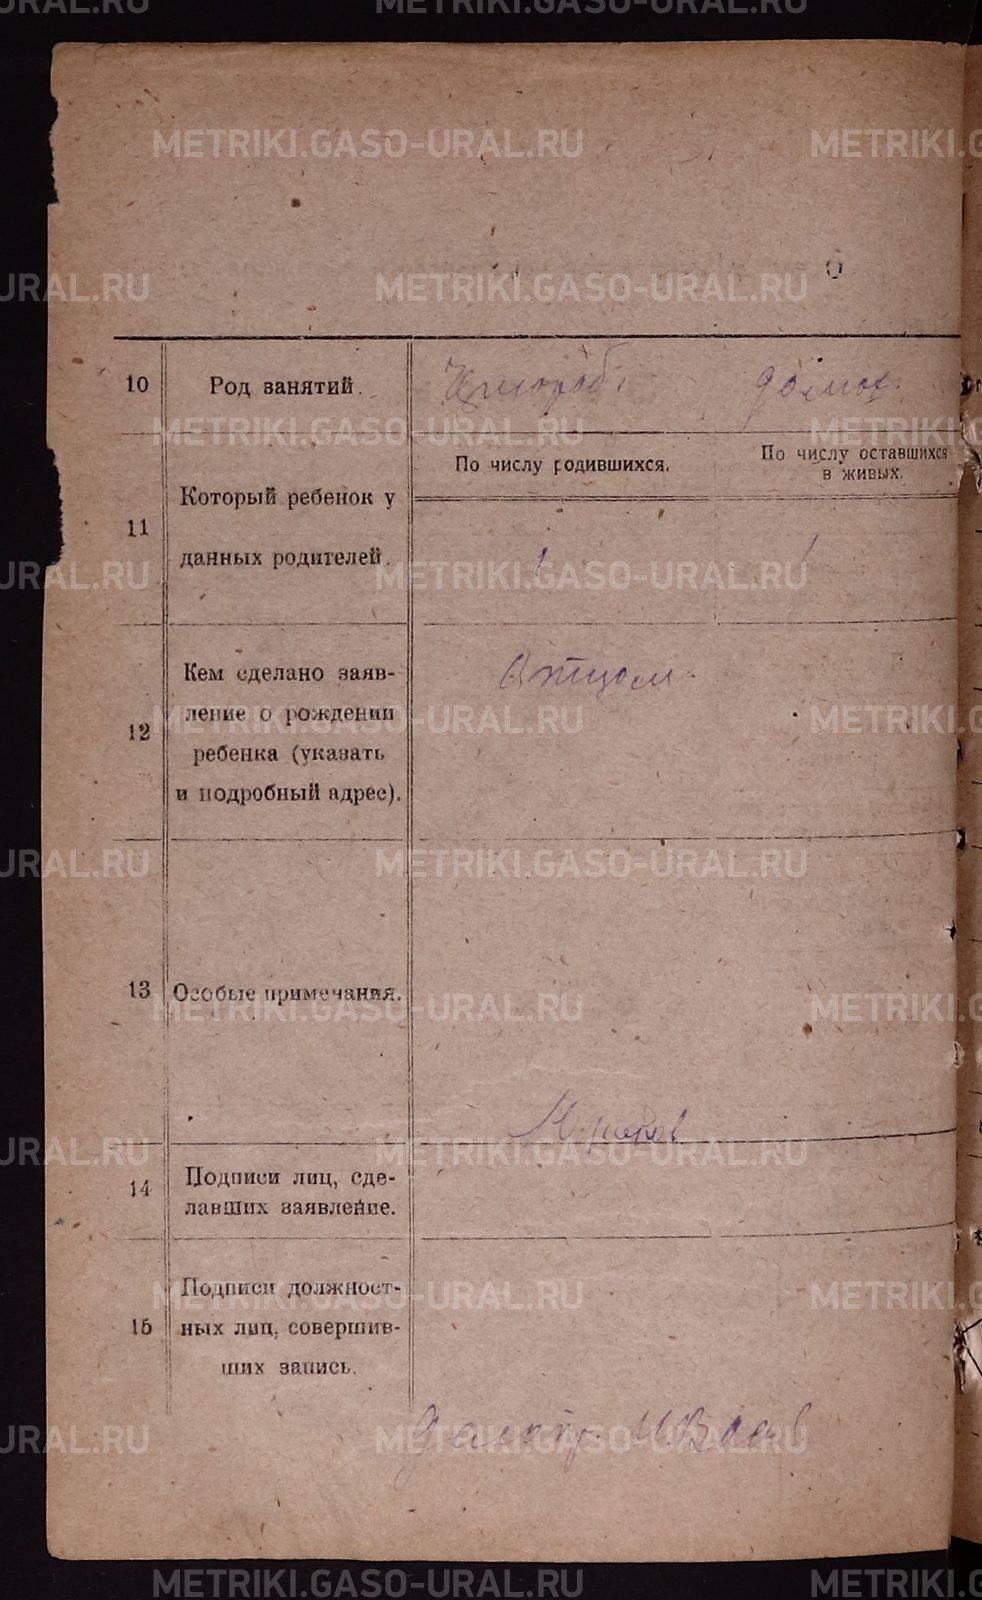 METRIKI.GASO-URAL.RU
10
Род занятий.
Чернораб.
домох.
По числу родившихся.
По числу оставшихся
в живых.
11
Который ребенок у
данных родителей.
1
1
12
Кем сделано заяв-
ление о рождении
ребенка (указать
и подробный адрес).
Отцом
13
Особые примечания.
14
Подписи лиц, сде-
лавших заявление.
15
Подписи должност-
ных лиц, совершив-
ших запись.